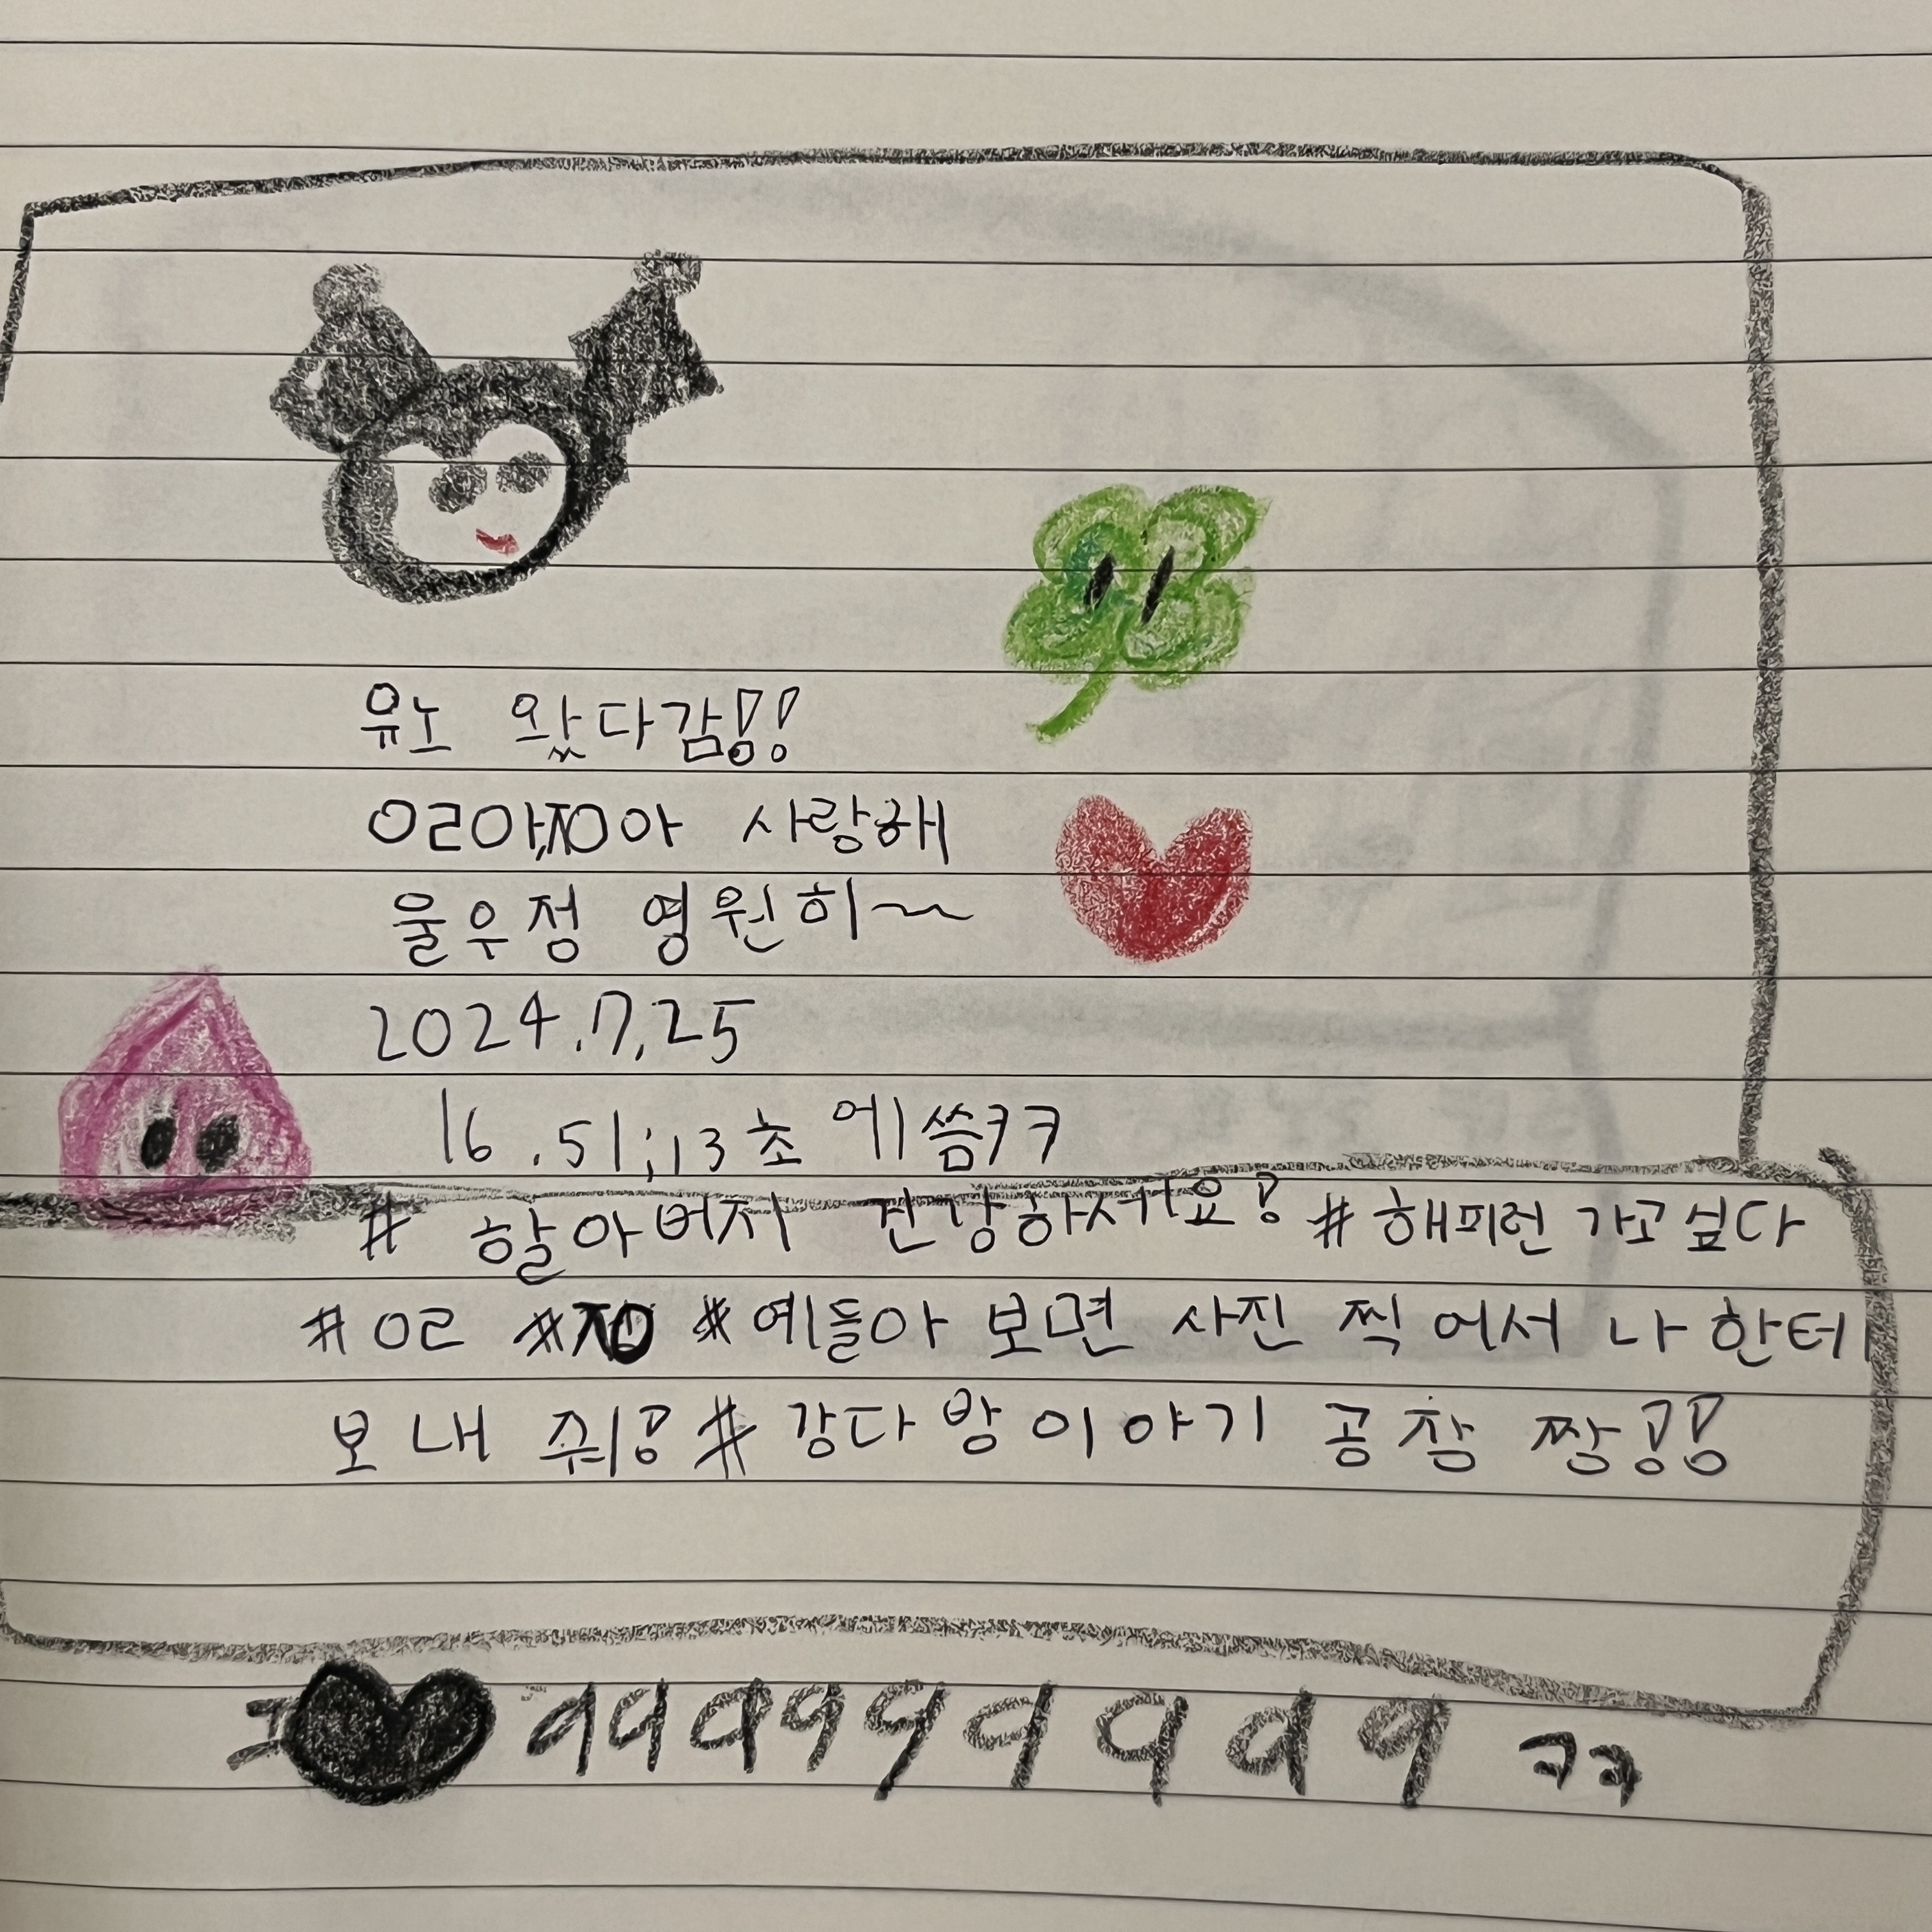 유노 왔다감!!
ㅇㄹ아,ㅈㅇ아 사랑해
울우정 영원히~
2024.7.25
16.51;13초 에씀ㅋㅋ
# 할아버지 건강하세요! #해피런 가고싶다
#ㅇㄹ #ㅈㅇ #얘들아 보면 사진 찍어서 나한테
보내 줘! #강다방이야기 공장 짱!!
999999999 ㅋㅋ